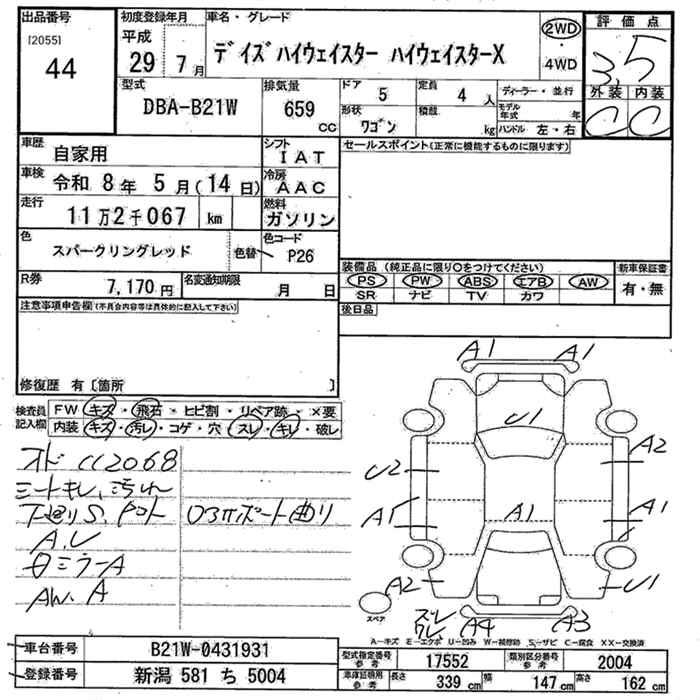 出品番号
[2055]
44
初度登録年月
平成
29年 7月
車名・グレード
ﾃﾞｲｽﾞﾊｲｳｪｲｽﾀｰ ﾊｲｳｪｲｽﾀｰX
2WD
・
4WD
評価点
3.5
外装 内装
C C
型式
DBA-B21W
排気量
659
CC
ドア
5
定員
4 人
ディーラー・並行
形状
ﾜｺﾞﾝ
積載
kg
モデル年式 年
ハンドル 左・右
車歴
自家用
シフト
IAT
車検
令和 8年 5月(14日)
冷房
AAC
走行
11万2千067 km
燃料
ガソリン
色
スパークリングレッド
色替
色コード
P26
R券
7,170円
名変通知期限
月 日
セールスポイント(正常に機能するものに限ります)
装備品 (純正品に限り○をつけてください)
PS PW ABS エアB AW
SR ナビ TV カワ
新車保証書
有・無
後日品
注意事項申告欄(不具合内容等は具体的に記入して下さい)
修復歴 有〔箇所 〕
検査員記入欄
FW キズ・飛石・ヒビ割・リペア跡・×要
内装 キズ・汚レ・コゲ・穴・スレ・キレ・破レ
オド 112068
シートキレ、汚れ
下廻りS、
A.U
ミラーA
AW. A
A1 A1
U1
A2
U2
A1
A1
A1
A2
U1
スレ
ワレ
A4
A3
スペア
A-キズ E-エクボ U-凹み W-補修跡 S-サビ C-腐食 XX-交換済
車台番号
B21W-0431931
登録番号
新潟 581 ち 5004
型式指定番号
参考
17552
類別区分番号
参考
2004
車庫証明用
参考
長さ
339 cm
幅
147 cm
高さ
162 cm